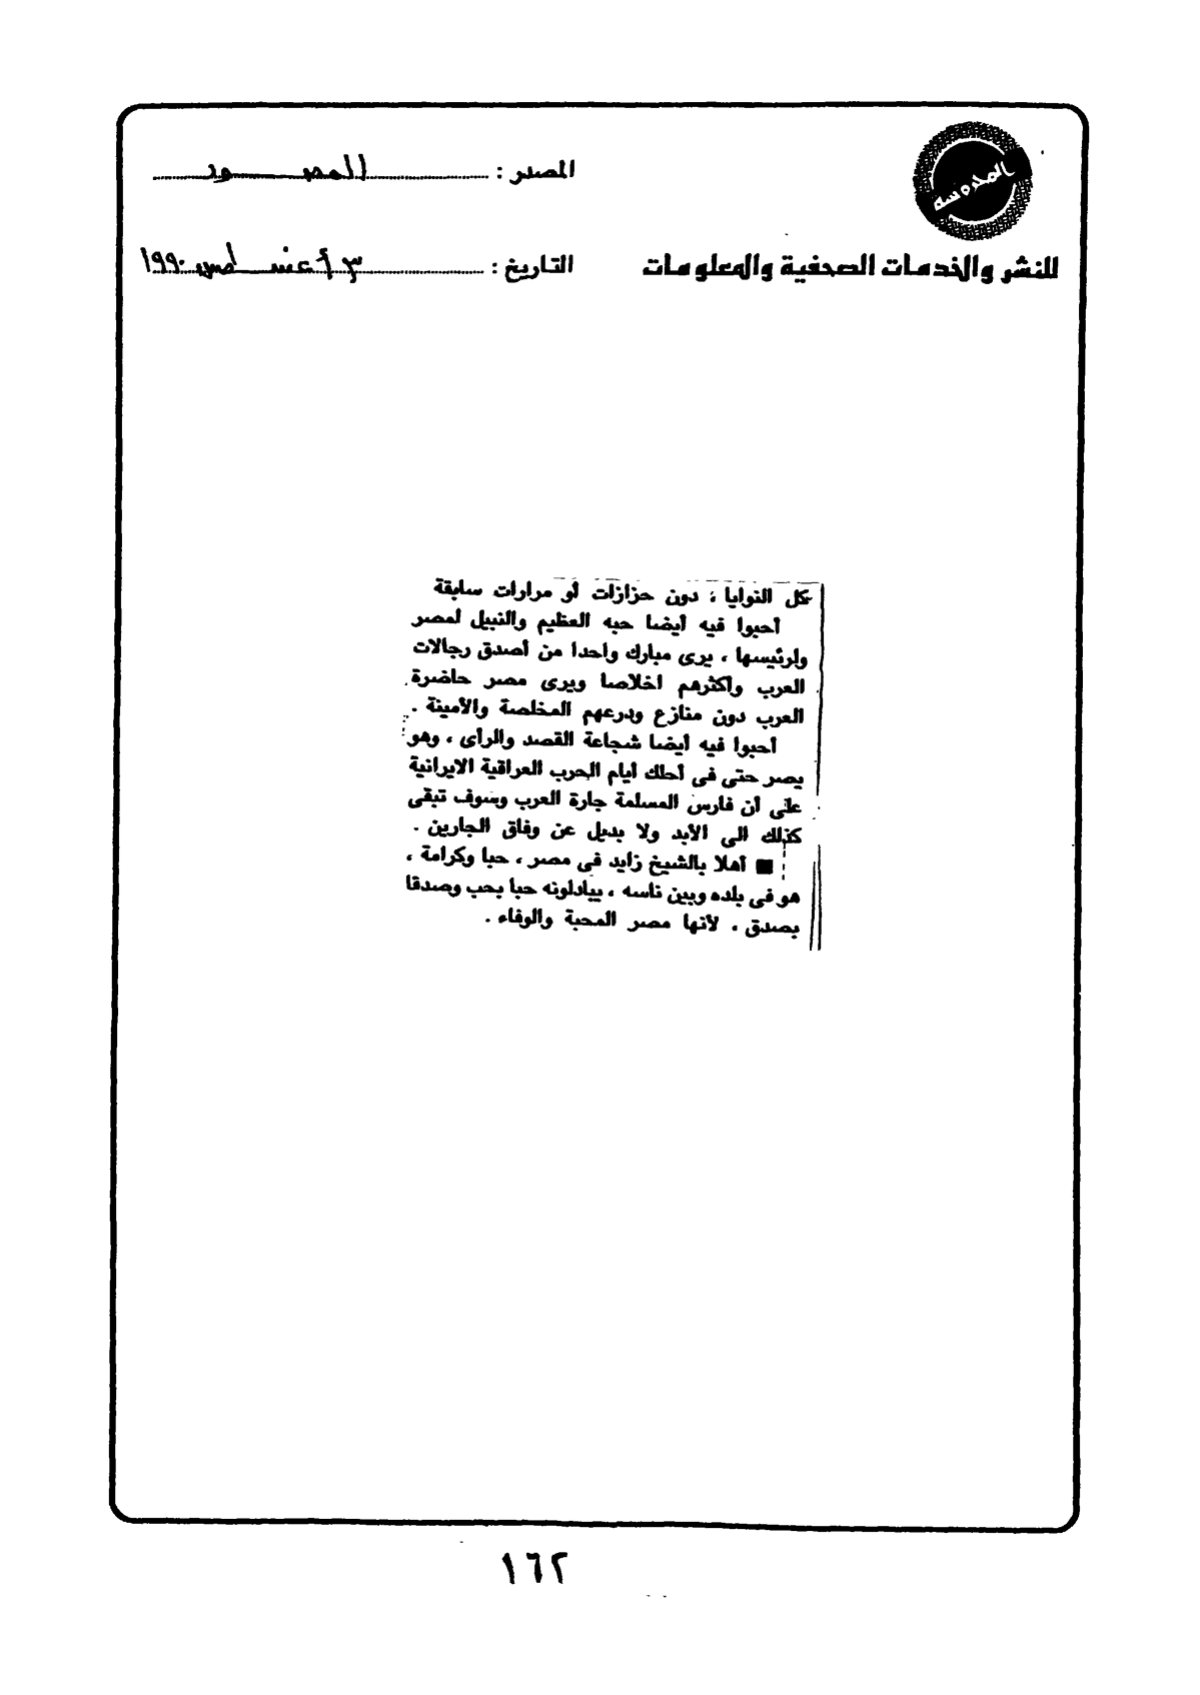 المحروسة
المصدر : المصور
للنشر والخدمات الصحفية والمعلومات
التاريخ : ٣ أغسطس ١٩٩٠
كل النوايا ، دون حزازات أو مرارات سابقة
أحبوا فيه أيضا حبه العظيم والنبيل لمصر
ولرئيسها ، يرى مبارك واحدا من أصدق رجالات
العرب وأكثرهم اخلاصا ويرى مصر حاضرة
العرب دون منازع ودرعهم المخلصة والأمينة .
أحبوا فيه أيضا شجاعة القصد والرأى ، وهو
يصر حتى فى أحلك أيام الحرب العراقية الايرانية
على أن فارس المسلمة جارة العرب وسوف تبقى
كذلك الى الأبد ولا بديل عن وفاق الجارين .
■ أهلا بالشيخ زايد فى مصر ، حبا وكرامة ،
هو فى بلده وبين ناسه ، يبادلونه حبا بحب وصدقا
بصدق ، لأنها مصر المحبة والوفاء .
١٦٢